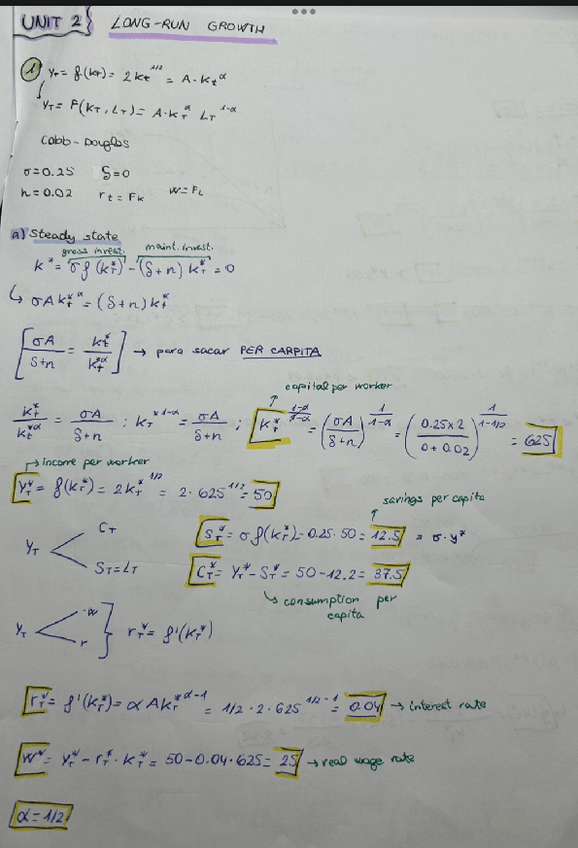 UNIT 2} LONG-RUN GROWTH
① y_T = f(k_T) = 2k_t^{1/2} = A·k_t^α
Y_T = F(K_T, L_T) = A·K_T^α L_T^{1-α}
Cobb-Douglas
σ=0.25 δ=0
n=0.02 r_t=F_K W=F_L
a) Steady state
gross invest. maint. invest.
k* = σf(k_T*) - (δ+n) k_T* = 0
↳ σAk_T*^α = (δ+n)k_T*
[σA/(δ+n) = k_t*/k_t*^α] → para sacar PER CARPITA
capital per worker
k_t*/k_t*^α = σA/(δ+n) ; k_T*^{1-α} = σA/(δ+n) ; k_T*^{(1-α)/(1-α)} = (σA/(δ+n))^{1/(1-α)} = ((0.25×2)/(0+0.02))^{1/(1-1/2)} = 625
→ income per worker
y_T* = f(k_T*) = 2k_T*^{1/2} = 2·625^{1/2} = 50
savings per capita
Y_T < C_T
S_T = I_T
S_T* = σf(k_T*) = 0.25·50 = 12.5 = σ·y*
C_T* = Y_T* - S_T* = 50-12.2 = 37.5
↳ consumption per capita
Y_T < w
r } r_T* = f'(k_T*)
r_T* = f'(k_T*) = αAk_T*^{α-1} = 1/2·2·625^{1/2-1} = 0.04 → interest rate
W* = Y_T* - r_T*·k_T* = 50-0.04·625 = 25 → real wage rate
α=1/2